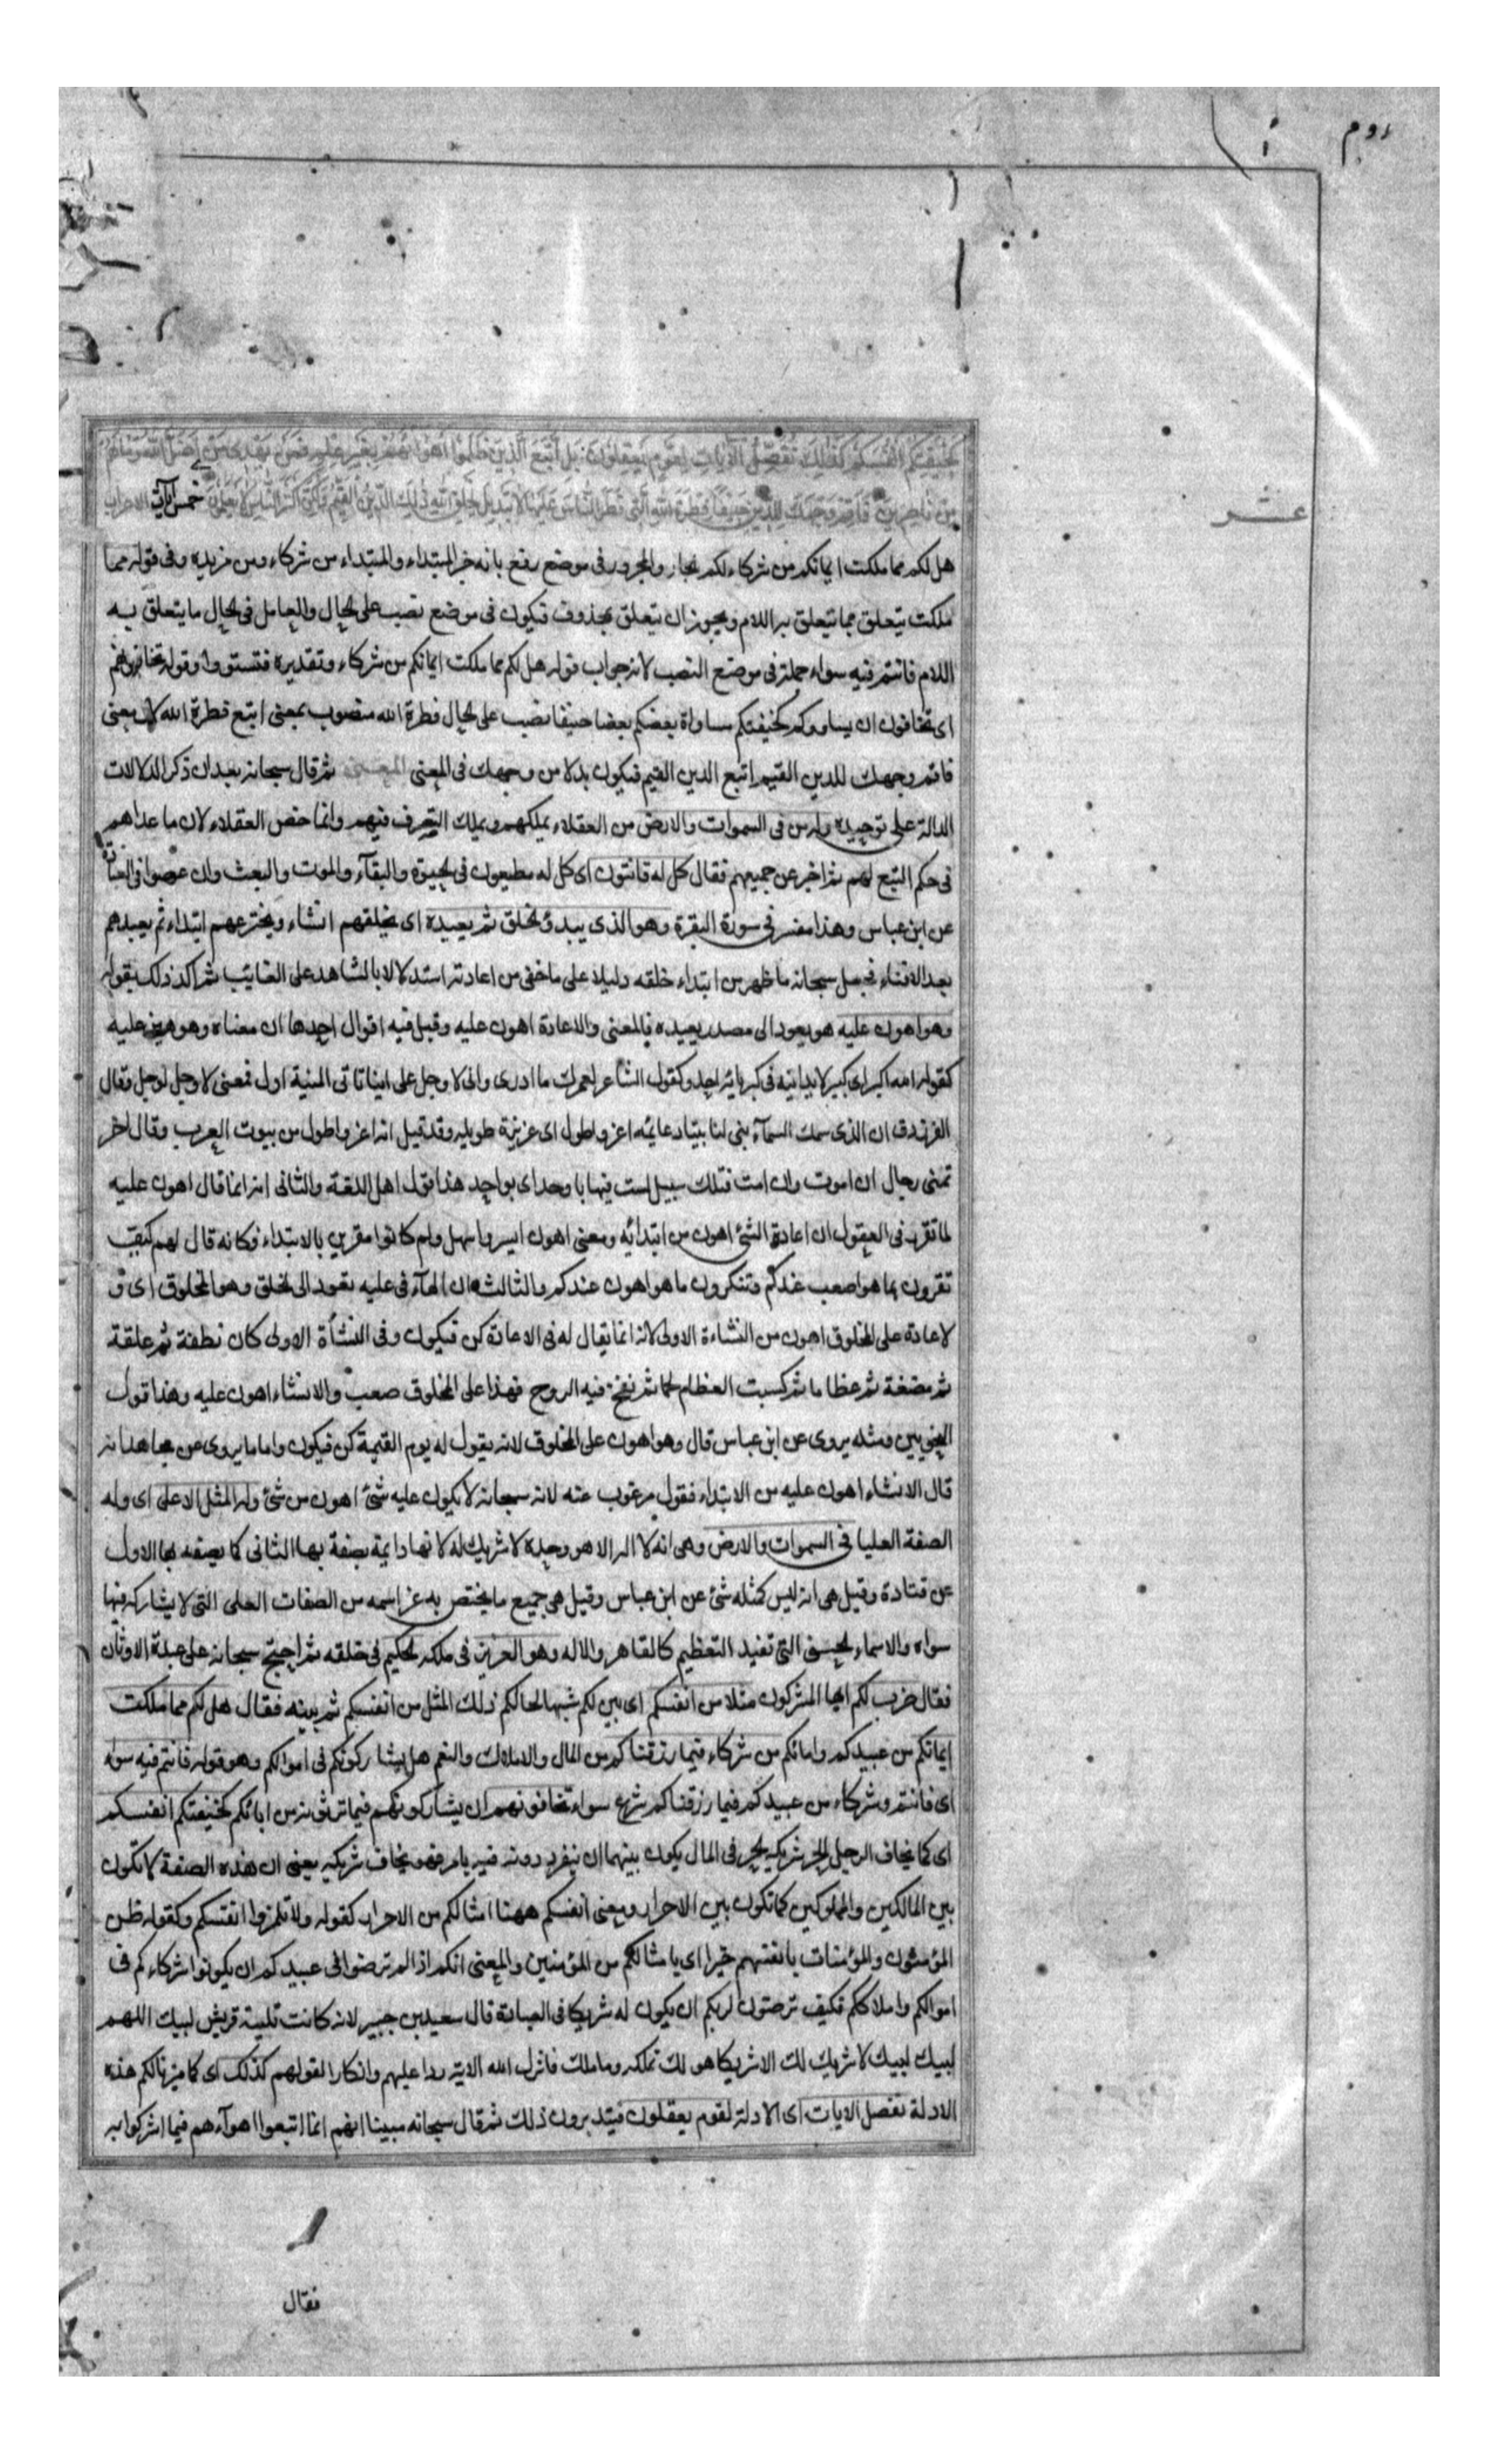 روم
كخيفتكم انفسكم كذلك نفصل الآيات لقوم يعقلون بل اتبع الذين ظلموا اهواءهم بغير علم فمن يهدى من اضل الله وما لهم
من ناصرين فاقم وجهك للدين حنيفا فطرة الله التى فطر الناس عليها لا تبديل لخلق الله ذلك الدين القيم ولكن اكثر الناس لا يعلمون خمس آيات الاعراب
عشر
هل لكم مما ملكت ايمانكم من شركاء لكم الجار والمجرور فى موضع رفع بانه خبر المبتداء والمبتداء من شركاء ومن مزيدة وفى قوله مما
ملكت يتعلق بما يتعلق به اللام ويجوز ان يتعلق بمحذوف فيكون فى موضع نصب على الحال والعامل فى الحال ما يتعلق به
اللام فانتم فيه سواء جملة فى موضع النصب لانه جواب قوله هل لكم مما ملكت ايمانكم من شركاء وتقديره فتستووا وقوله تخافونهم
اى تخافون ان يساووكم كخيفتكم مساواة بعضكم بعضا حنيفا نصب على الحال فطرة الله منصوب بمعنى اتبع فطرة الله لان معنى
فاقم وجهك للدين القيم اتبع الدين القيم فيكون بدلا من وجهك فى المعنى المعنى ثم قال سبحانه بعد ان ذكر الدلالات
الدالة على توحيده وله من فى السموات والارض من العقلاء يملكهم ويملك التصرف فيهم وانما خص العقلاء لان ما عداهم
فى حكم التبع لهم ثم اخبر عن جميعهم فقال كل له قانتون اى كل له مطيعون فى الحيوة والبقآء والموت والبعث وان عصوا فى العبادة
عن ابن عباس وهذا مفسر فى سورة البقرة وهو الذى يبدؤ الخلق ثم يعيده اى يخلقهم انشاء ويخترعهم ابتداء ثم يعيدهم
بعد الافناء فجعل سبحانه ما ظهر من ابتداء خلقه دليلا على ما خفى من اعادته استدلالا بالشاهد على الغايب ثم اكد ذلك بقوله
وهو اهون عليه هو يعود الى مصدر يعيده فالمعنى والاعادة اهون عليه وقيل فيه اقوال احدها ان معناه وهو هين عليه
كقوله الله اكبر اى كبير لا يدانيه فى كبريائه احد وكقول الشاعر لعمرك ما ادرى وانى لاوجل على اينا تاتى المنية اول فمعنى لاوجل لوجل وقال
الفرزدق ان الذى سمك السمآء بنى لنا بيتا دعايمه اعز واطول اى عزيزة طويلة وقد قيل انه اعز واطول من بيوت العرب وقال اخر
تمنى رجال ان اموت وان امت فتلك سبيل لست فيها باوحد اى بواحد هذا قول اهل اللغة والثانى انه انما قال اهون عليه
لما تقرر فى العقول ان اعادة الشئ اهون من ابتدائه ومعنى اهون ايسر واسهل وهم كانوا مقرين بالابتداء فكانه قال لهم كيف
تقرون بما هو اصعب عندكم وتنكرون ما هو اهون عندكم والثالث ان الهآء فى عليه يعود الى الخلق وهو المخلوق اى و
لاعادة على المخلوق اهون من النشاءة الاولى لانه انما يقال له فى الاعادة كن فيكون وفى النشأة الاولى كان نطفة ثم علقة
ثم مضغة ثم عظاما ثم كسيت العظام لحما ثم نفخ فيه الروح فهذا على المخلوق صعب والانشاء اهون عليه وهذا قول
النحويين ومثله يروى عن ابن عباس قال وهو اهون على المخلوق لانه يقول له يوم القيمة كن فيكون واما ما يروى عن مجاهد انه
قال الانشاء اهون عليه من الابتداء فقول مرغوب عنه لانه سبحانه لا يكون عليه شئ اهون من شئ وله المثل الاعلى اى وله
الصفة العليا فى السموات والارض وهى انه لا اله الا هو وحده لا شريك له لانها دايمة يصفه بها الثانى كما يصفه بها الاول
عن قتادة وقيل هى انه ليس كمثله شئ عن ابن عباس وقيل هى جميع ما يختص به عز اسمه من الصفات العلى التى لا يشاركه فيها
سواه والاسماء الحسنى التى تفيد التعظيم كالقاهر والاله وهو العزيز فى ملكه الحكيم فى خلقه ثم احتج سبحانه على عبدة الاوثان
فقال ضرب لكم ايها المشركون مثلا من انفسكم اى بين لكم شبها لحالكم ذلك المثل من انفسكم ثم بينه فقال هل لكم مما ملكت
ايمانكم من عبيدكم وامائكم من شركاء فيما رزقناكم من المال والاملاك والنعم هل يشاركونكم فى اموالكم وهو قوله فانتم فيه سواء
اى فانتم وشركاء من عبيدكم فيما رزقناكم شرع سواء تخافونهم ان يشاركونكم فيما ترثونه من ابائكم كخيفتكم انفسكم
اى كما يخاف الرجل الحر شريكه الحر فى المال يكون بينهما ان ينفرد دونه فيه بامر فهو يخاف شريكه يعنى ان هذه الصفة لا تكون
بين المالكين والمملوكين كما تكون بين الاحرار ومعنى انفسكم ههنا امثالكم من الاحرار كقوله ولا تلمزوا انفسكم وكقوله ظن
المؤمنون والمؤمنات بانفسهم خيرا اى بامثالكم من المؤمنين والمعنى انكم اذا لم ترضوا فى عبيدكم ان يكونوا شركاءكم فى
اموالكم واملاككم فكيف ترضون لربكم ان يكون له شريكا فى العبادة قال سعيد بن جبير لانه كانت تلبية قريش لبيك اللهم
لبيك لبيك لا شريك لك الا شريكا هو لك تملكه وما ملك فانزل الله الاية ردا عليهم وانكارا لقولهم كذلك اى كما ميزنا لكم هذه
الادلة نفصل الايات اى الادلة لقوم يعقلون فيتدبرون ذلك ثم قال سبحانه مبينا انهم انما اتبعوا اهوآءهم فيما اشركوا به
فقال